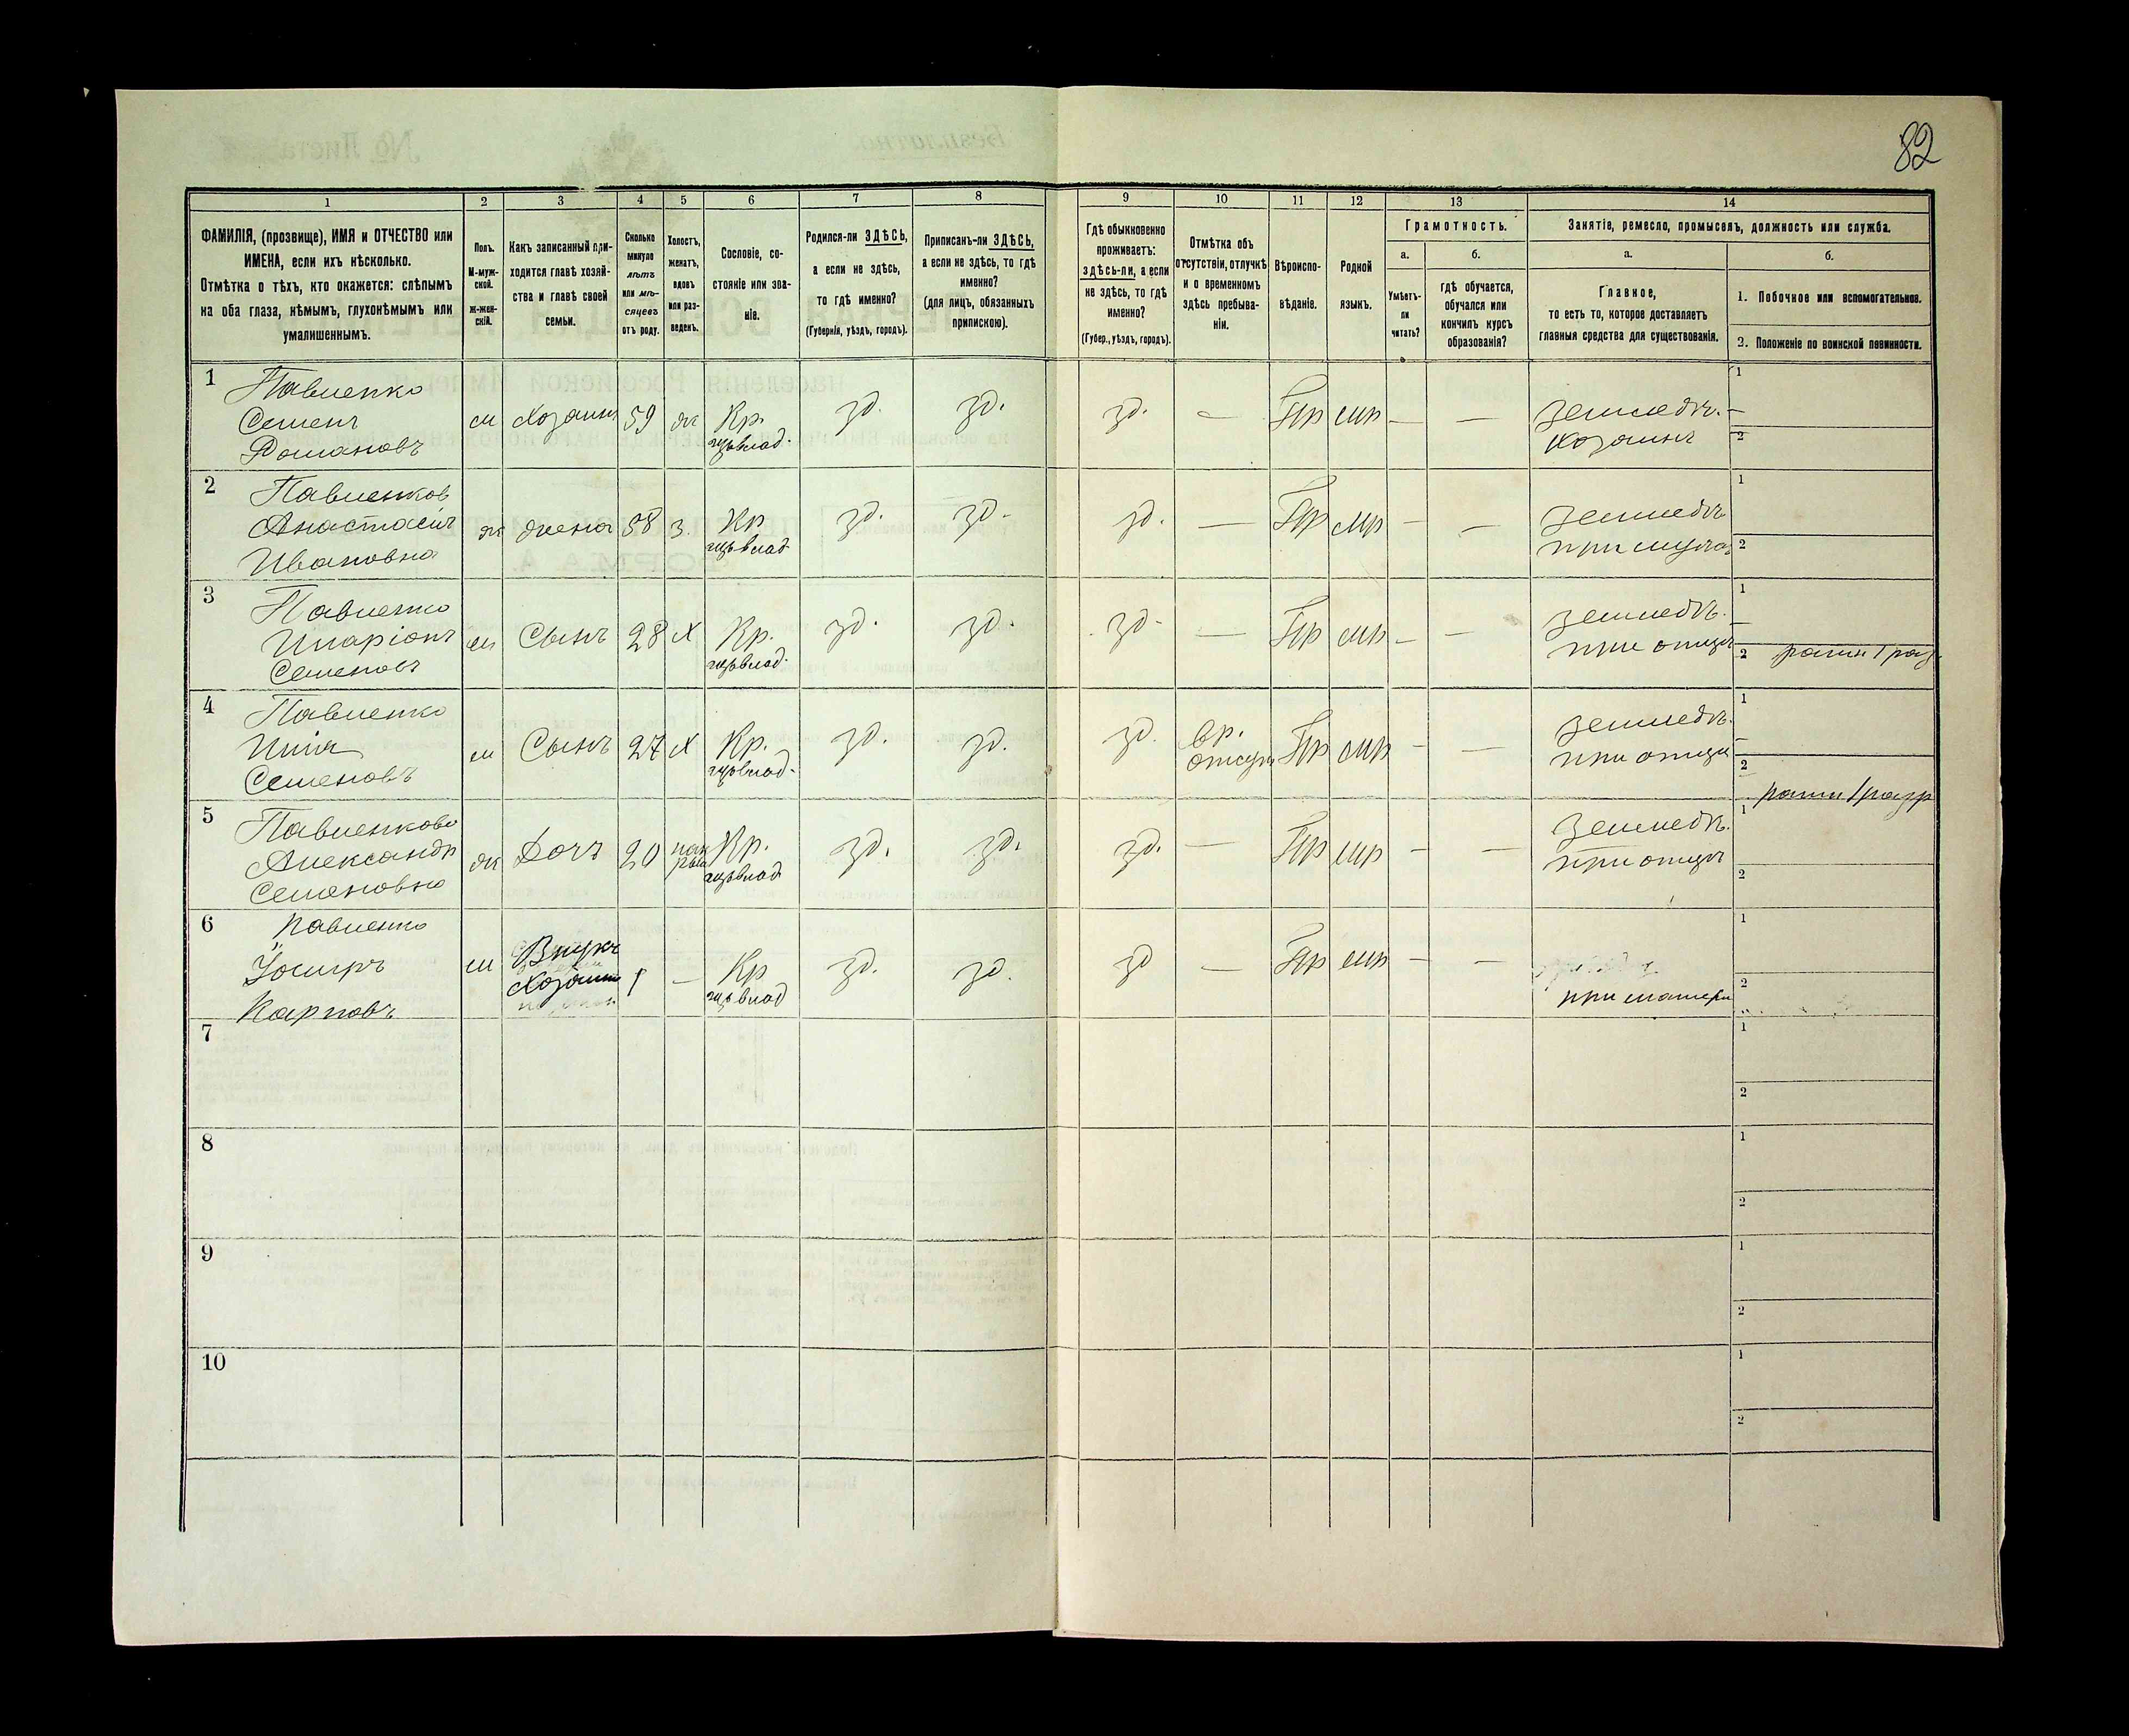 82
1 2 3 4 5 6 7 8 9 10 11 12 13 14
ФАМИЛІЯ, (прозвище), ИМЯ и ОТЧЕСТВО или
ИМЕНА, если ихъ нѣсколько.
Отмѣтка о тѣхъ, кто окажется: слѣпымъ
на оба глаза, нѣмымъ, глухонѣмымъ или
умалишеннымъ.
Полъ.
М-муж-
ской.
ж-жен-
скій.
Какъ записанный при-
ходится главѣ хозяй-
ства и главѣ своей
семьи.
Сколько
минуло
лѣтъ
или мѣ-
сяцевъ
отъ роду.
Холостъ,
женатъ,
вдовъ
или раз-
веденъ.
Сословіе, со-
стояніе или зва-
ніе.
Родился-ли ЗДѢСЬ,
а если не здѣсь,
то гдѣ именно?
(Губернія, уѣздъ, городъ).
Приписанъ-ли ЗДѢСЬ,
а если не здѣсь, то гдѣ
именно?
(для лицъ, обязанныхъ
припискою).
Гдѣ обыкновенно
проживаетъ:
здѣсь-ли, а если
не здѣсь, то гдѣ
именно?
(Губер., уѣздъ, городъ).
Отмѣтка объ
отсутствіи, отлучкѣ
и о временномъ
здѣсь пребыва-
ніи.
Вѣроиспо-
вѣданіе.
Родной
языкъ.
Грамотность.
а.
Умѣетъ-
ли
читать?
б.
гдѣ обучается,
обучался или
кончилъ курсъ
образованія?
Занятіе, ремесло, промыселъ, должность или служба.
а.
Главное,
то есть то, которое доставляетъ
главныя средства для существованія.
б.
1. Побочное или вспомогательное.
2. Положеніе по воинской повинности.
1 Павленко
Семенъ
Романовъ
м Хозяинъ 59 ж Кр. зд. зд. зд. — Пр мр — — земледѣ. —
хозяинъ
1
2
2 Павленков
Анастасія
Ивановна
ж жена 58 з. Кр зд. зд. зд. — Пр мр — — земледѣ
при мужѣ
1
2
3 Павленко
Иларіонъ
Семеновъ
м Сынъ 28 х Кр. зд. зд. зд. — Пр мр — — земледѣ.
при отцѣ
1 —
2 ратн 1 раз
4 Павленко
Илія
Семеновъ
м Сынъ 27 х Кр. зд. зд. зд. вр. Пр мр — — земледѣ.
при отцѣ
1 —
2
ратн 1 разр
5 Павленкова
Александр
Семеновна
ж Дочь 20 Кр. зд. зд. зд. — Пр мр — — земледѣ.
при отцѣ
1
2
6 Павленко
Карповъ
м Внукъ
Хозяин
1 — Кр зд. зд. зд — Пр мр — —
при матери
1
2
7
1
2
8
1
2
9
1
2
10
1
2